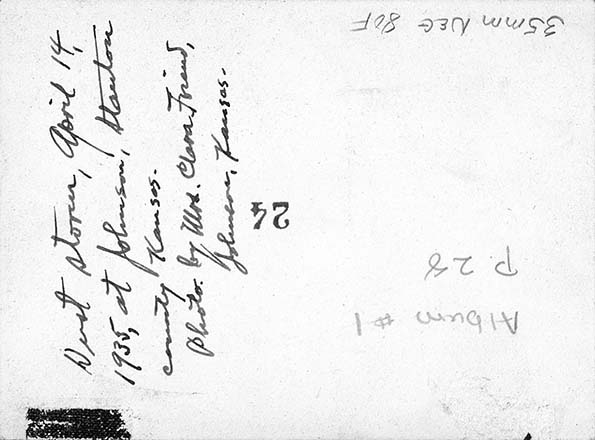 Dust storm, April 14,
1935, at Johnson, Stanton
county Kansas.
Photo. by Mrs. Clara Friend,
Johnson, Kansas.
24
35mm NEG 80F
P. 28
Album #1